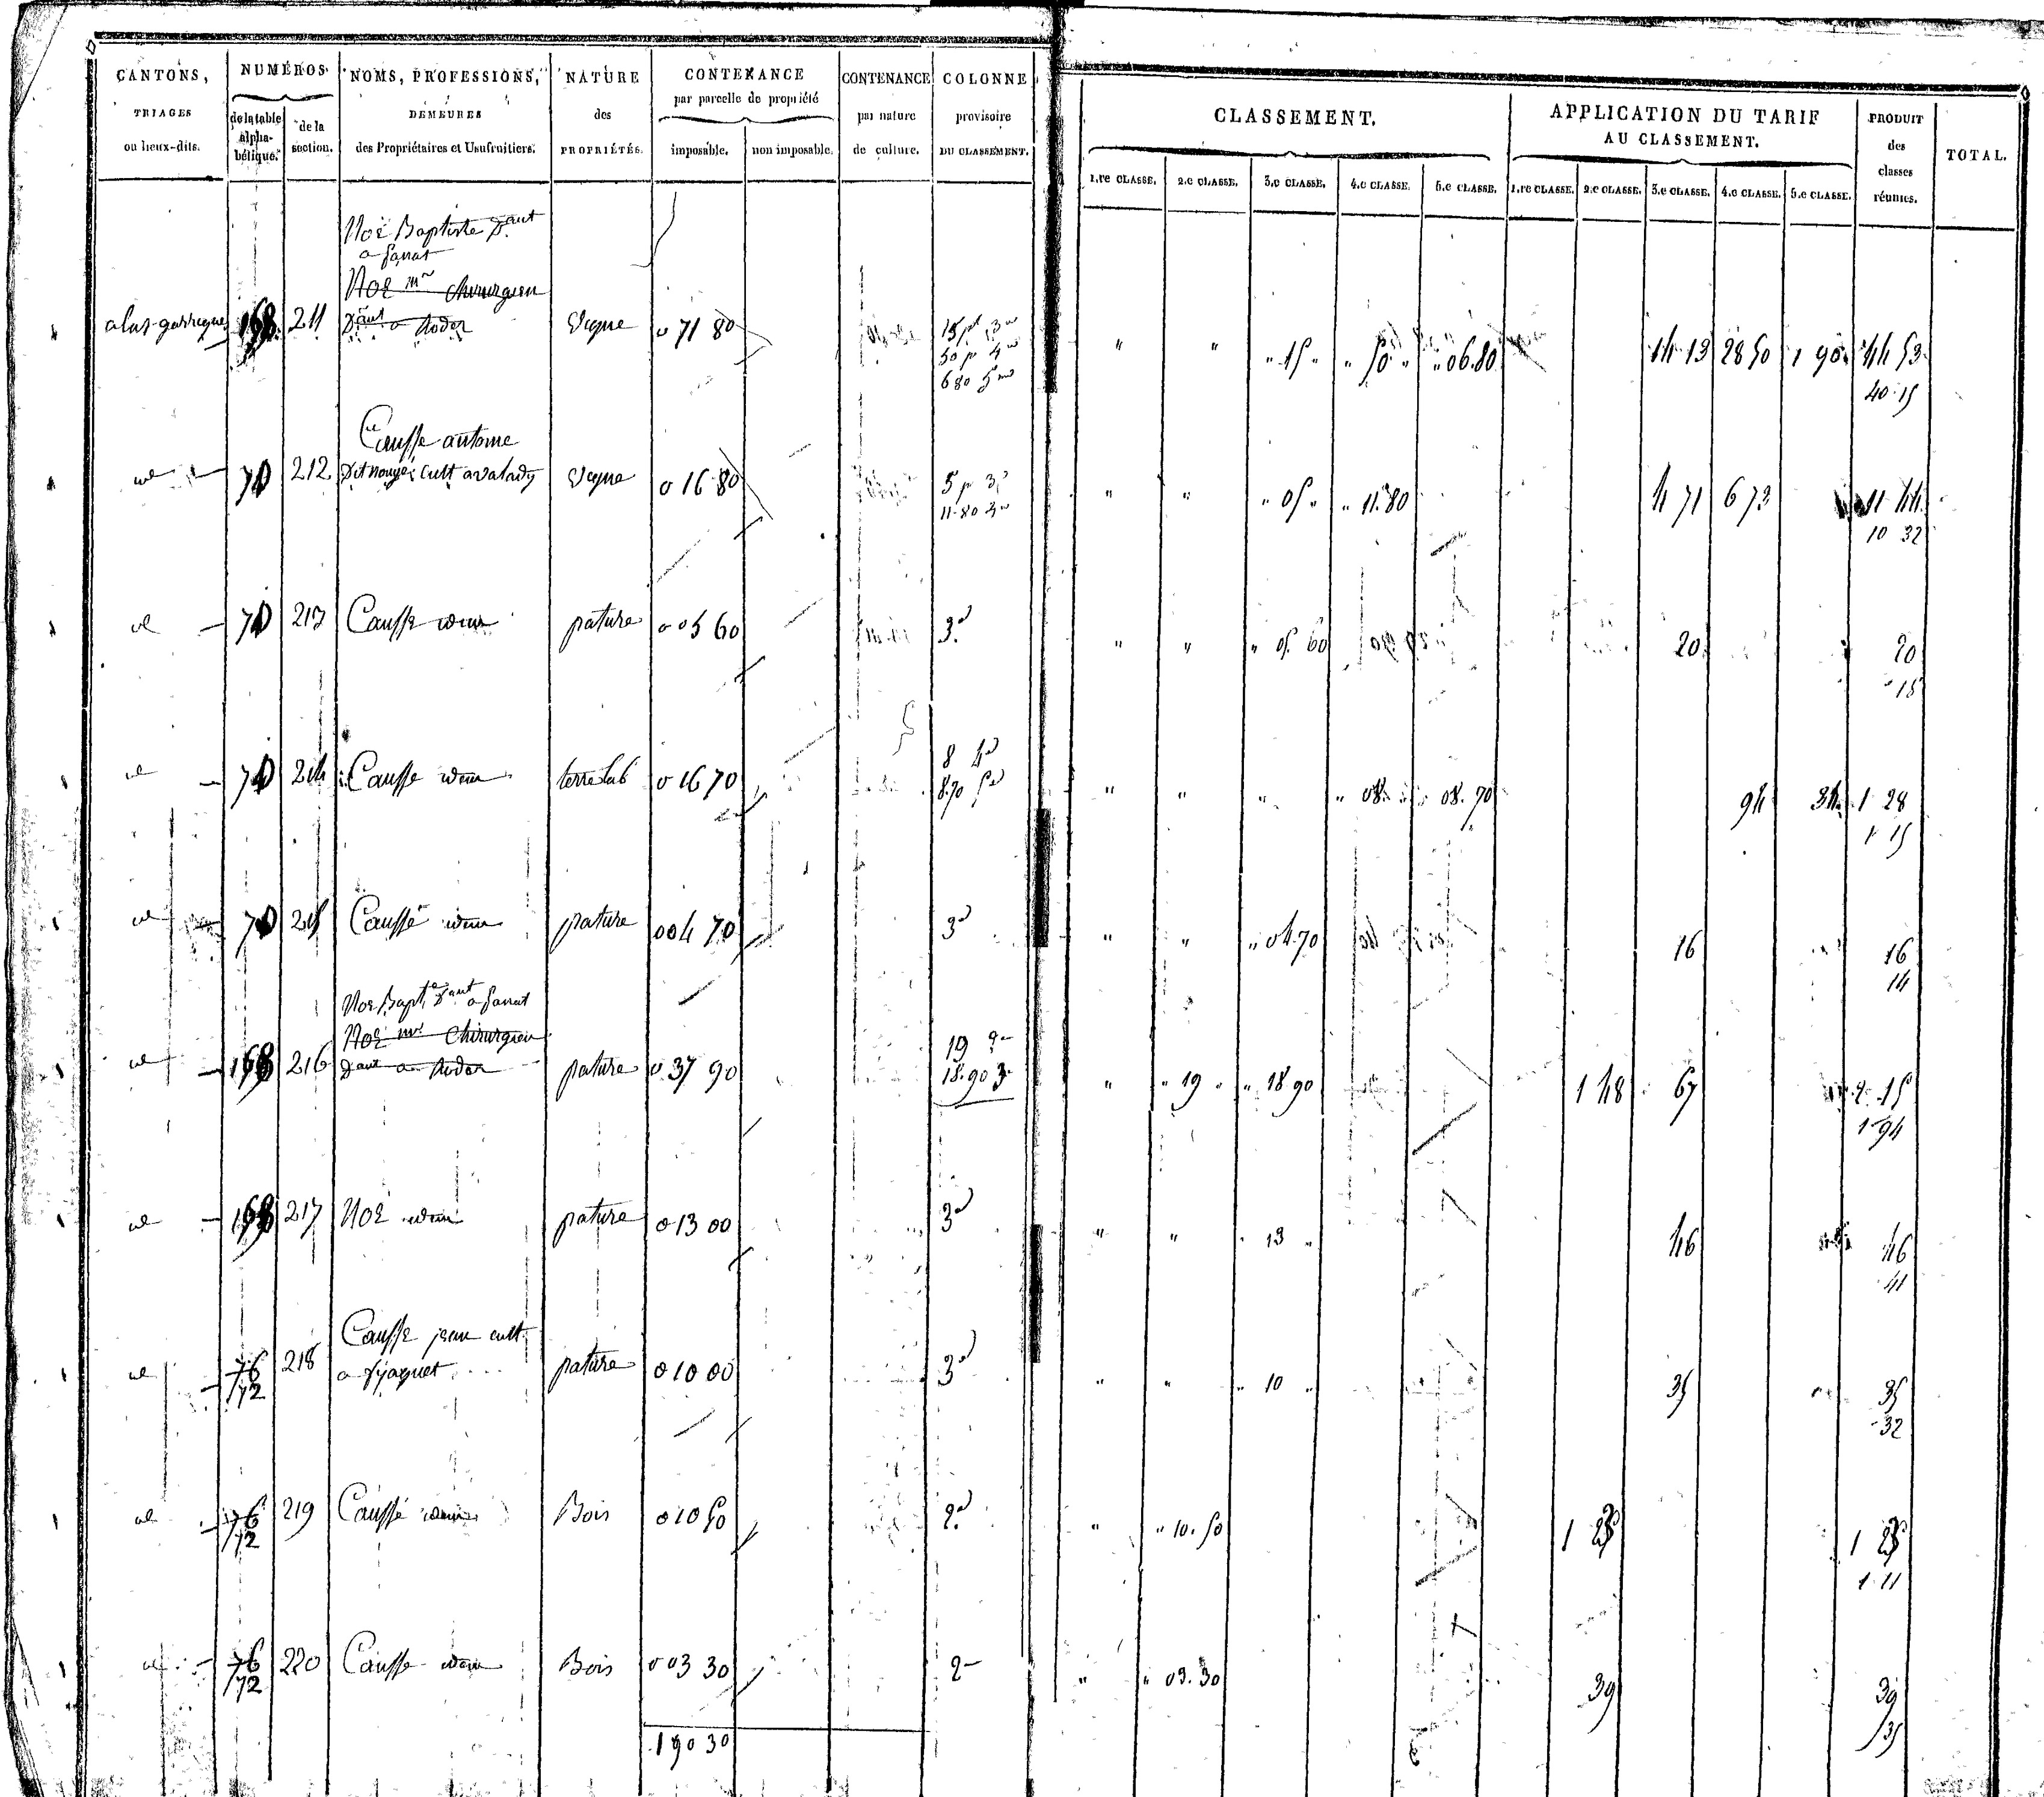 CANTONS, TRIAGES ou lieux-dits.
NUMÉROS de la table alphabétique. de la section.
NOMS, PROFESSIONS, DEMEURES des Propriétaires et Usufruitiers.
NATURE des PROPRIÉTÉS.
CONTENANCE par parcelle de propriété imposable. non imposable.
CONTENANCE par nature de culture.
COLONNE provisoire DU CLASSEMENT.
CLASSEMENT.
1.re CLASSE. 2.e CLASSE. 3.e CLASSE. 4.e CLASSE. 5.e CLASSE.
APPLICATION DU TARIF AU CLASSEMENT.
1.re CLASSE. 2.e CLASSE. 3.e CLASSE. 4.e CLASSE. 5.e CLASSE.
PRODUIT des classes réunies.
TOTAL.
Noé Baptiste
Noé chirurgien
168 211 a Rodez Vigne 0 71 80 " " " 15 " " 50 " " 06.80 14 13 28 50 1 90 44 53
50 p 4
6 80 5
40 15
Causse antoine
70 212 cult Vigne 0 16 80 5 p 3 " " " 05 " " 11.80 4 71 6 73 11 44
11 80 4
10 32
70 213 Causse idem pature 0 05 60 3 " " " 05 60 20 20
18
70 214 Causse idem terre lab 0 16 70 8 4 " " " " 08 08.70 94 34 1 28
8.70 5
1 15
70 215 Causse idem pature 0 04 70 3 " " " 04.70 16 16
14
Noé Bapt
Noé chirurgien
168 216 a Rodez pature 0 37 90 19 2 " " 19 " " 18 90 1 48 67 2 15
18.90 3
1 94
168 217 Noé idem pature 0 13 00 3 " " 13 " 46 46
41
Causse jean cult
76 218 pature 0 10 00 3 " " " 10 " 35 35
72
32
76 219 Causse idem Bois 0 10 50 2 " " 10.50 1 1
72
1 11
76 220 Causse idem Bois 0 03 30 2 " " 03.30 39 39
72
35
1 90 30